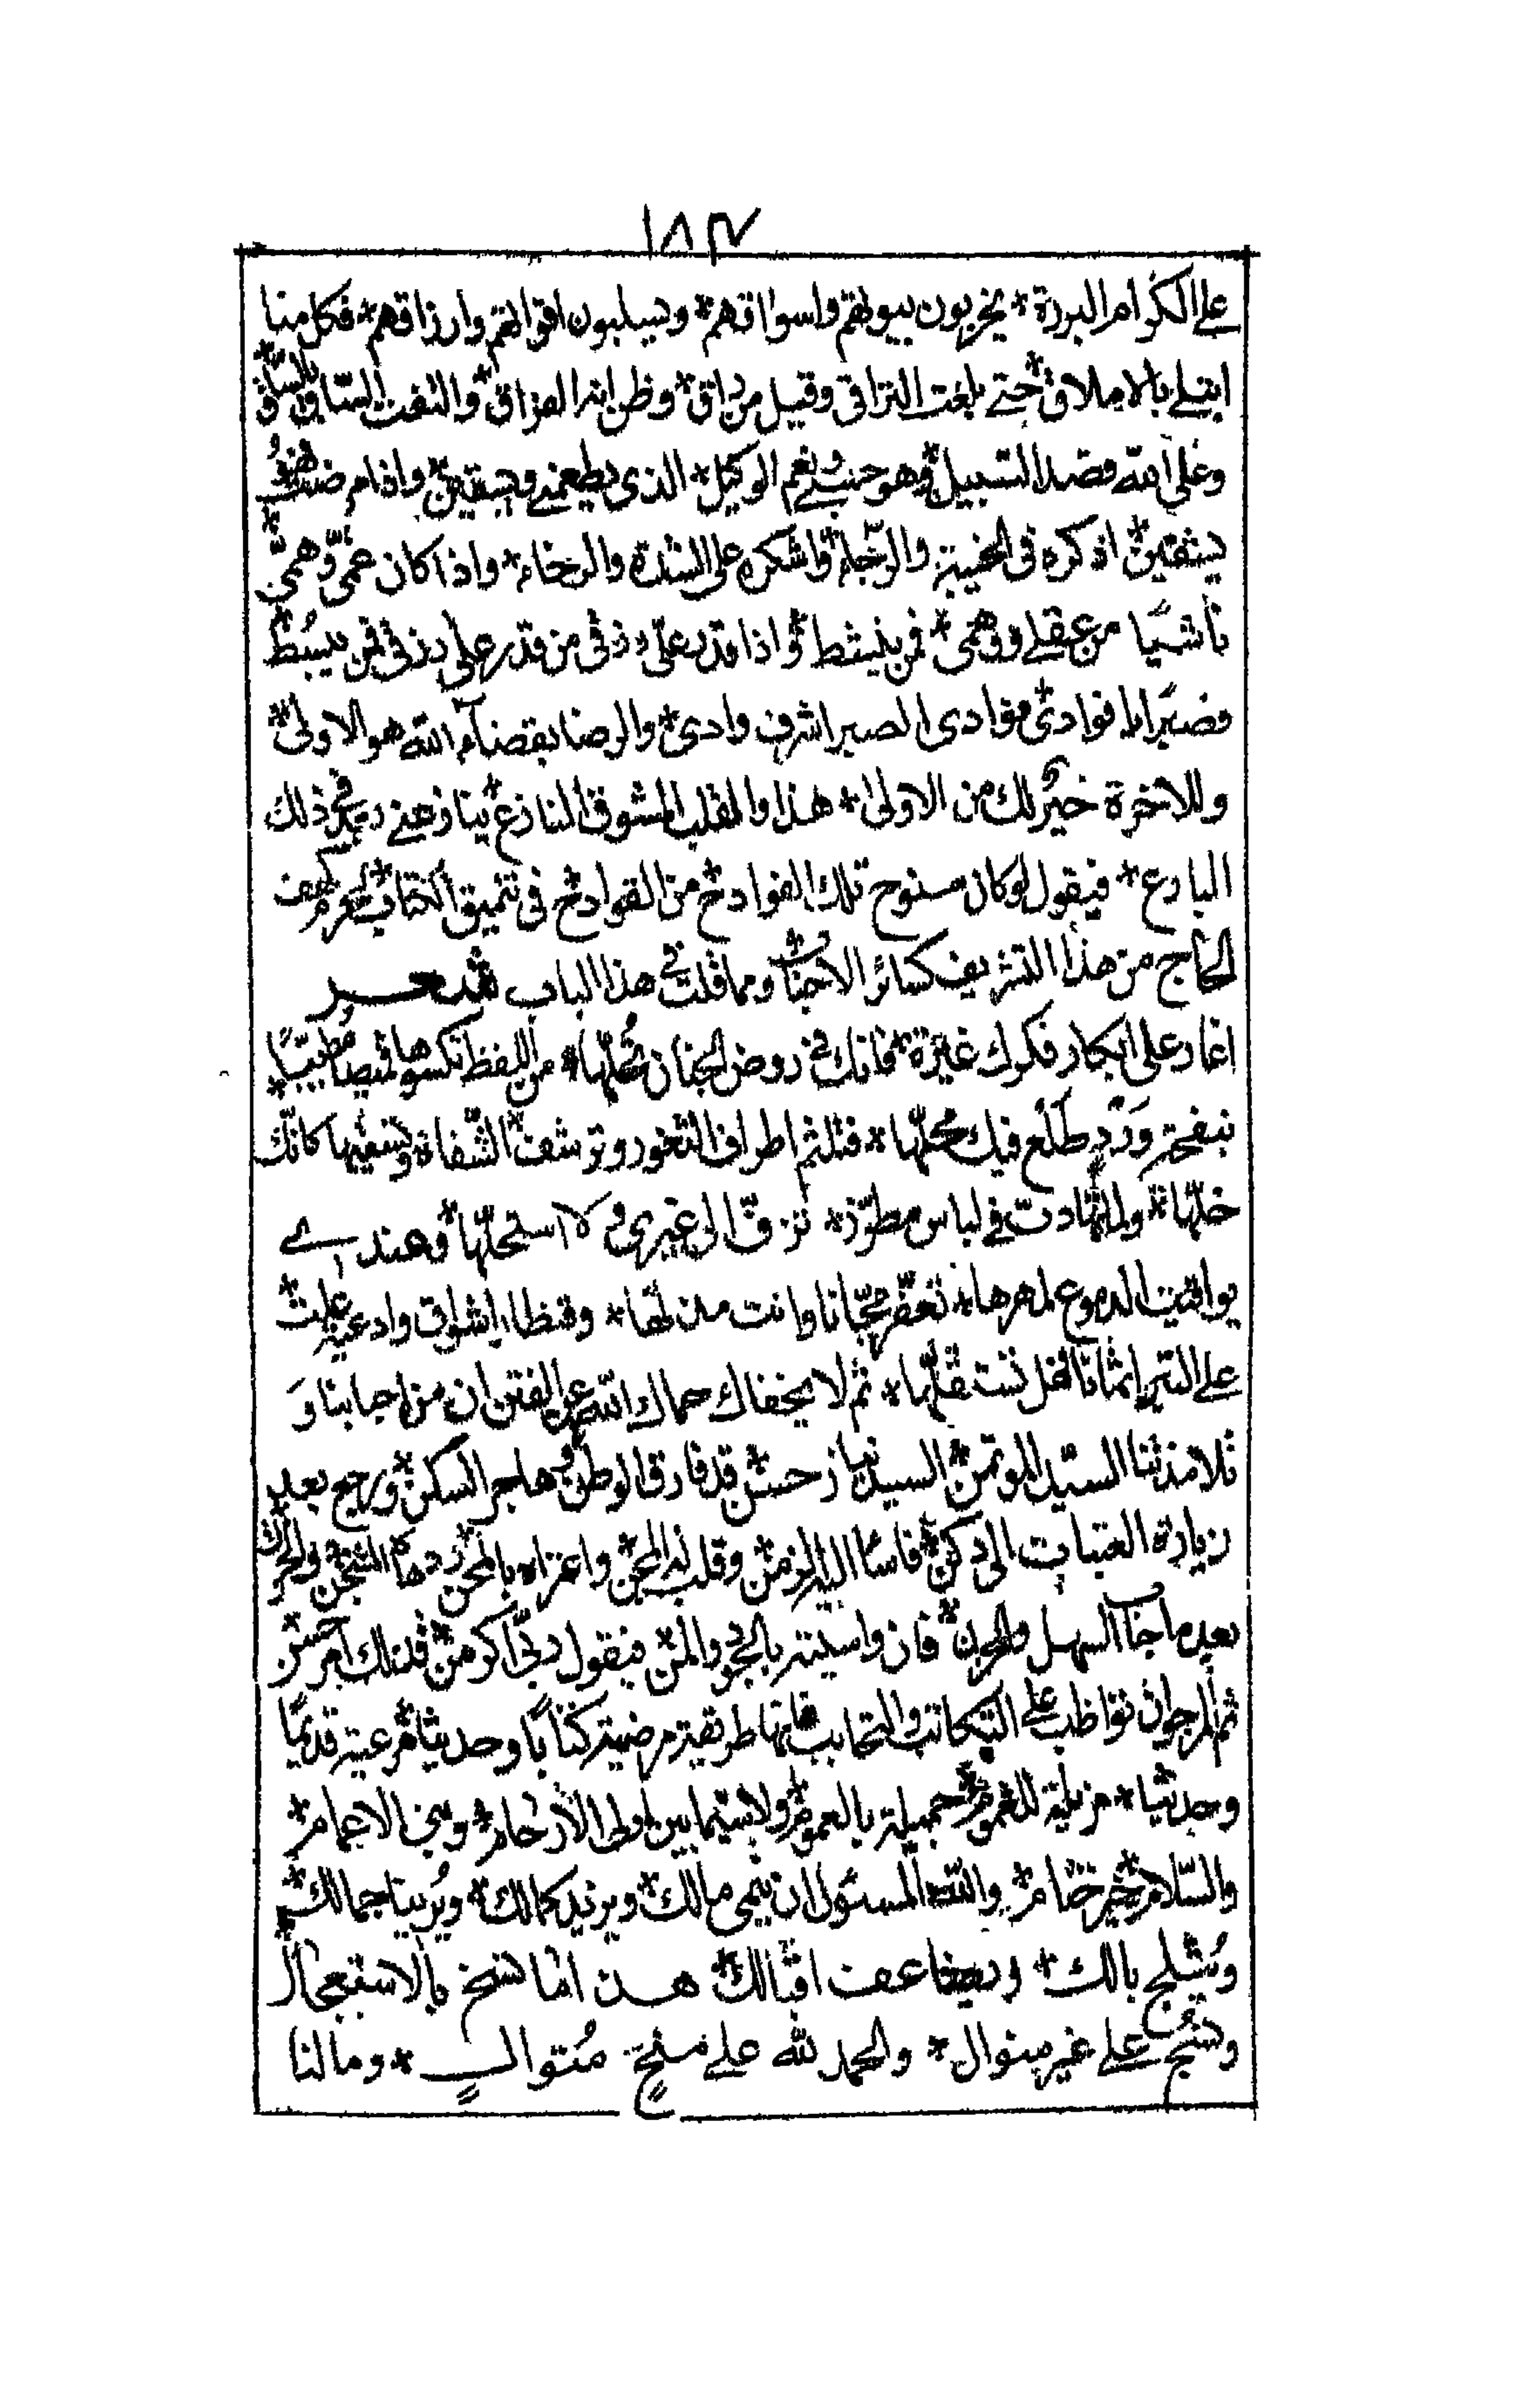 ١٨٣
على الكرام البررة * يخربون بيوتهم واسواقهم * ويسلبون اقواتهم وارزاقهم * فكل منا
ابتلى بالاملاق * حتى بلغت التراقى وقيل من راق * وظن انه الفراق * والتفت الساق بالساق * و
وعلى الله قصد السبيل * وهو حسبى ونعم الوكيل * الذى يطعمنى ويسقين * واذا مرضت فهو
يشفين * اذكره فى الخيبة والرجاء * واشكره على الشدة والرخاء * واذا كان غمى وهمى
ناشيا من عقلى وفهمى * فمن ينشط * واذا قدر على رزقى من قدر على رزقى فمن يبسط
فصبرا يا فوادى * فوادى الصبر اشرف وادى * والرضا بقضاء الله هو الاولى *
وللاخرة خير لك من الاولى * هذا والقلب المشوق النازع * ينازعنى فى ذلك
البارع * فيقول لو كان سنوح تلك الفوادح من القوادح فى تنميق الكتاب * لم حرمت
الحاج من هذا التشريف كسائر الاحباب * ومما قلت فى هذا الباب شعر
اغار على ابكار فكرك غيرة * فانك فى روض الجنان تحلها * من اللفظ تكسوها قميصا مطيبا *
بنفحة ورد طلع فيك محلها * فتلثم اطراف الثغور وترشف الشفاة وتسقيها كانك
خلها * ولما تهادت فى لباس مطرز * تزف الى غيرى ولا استحلها * وهذى
يواقيت الدموع لمهرها *
على التبر اثمانا فهل انت تقلها * ثم لا يخفاك حماك الله عن الفتن ان من احبابنا و
تلامذتنا السيد المؤتمن * السيد نياز حسن * قد فارق الوطن * وهاجر السكن * ورجع بعد
زيارة العتبات الى دكن * فاساء اليه الزمن * وقلب له المجن * واغراه بالمحن *
بعد ما جاب السهل والحزن * فان واسيته بالجود والمن * فيقول ربى اكرمن * فذلك امر حسن
ثم المرجو ان تواظب على التكاتب والتحابب فانها طريقة مرضية كتابا وحديثا * مرعية قديما
وحديثا * مزيلة للغموم * جميلة بالعموم * ولا سيما بين اولى الارحام * وبنى الاعمام *
والسلام خير ختام * والله المسئول ان ينمى مالك * ويزيد كمالك * ويرينا جمالك *
ويثلج بالك * ويضاعف اقبالك * هذا ما نسخ بالاستعجال
ونسج على غير منوال * والحمد لله على منح متوال * وما لنا